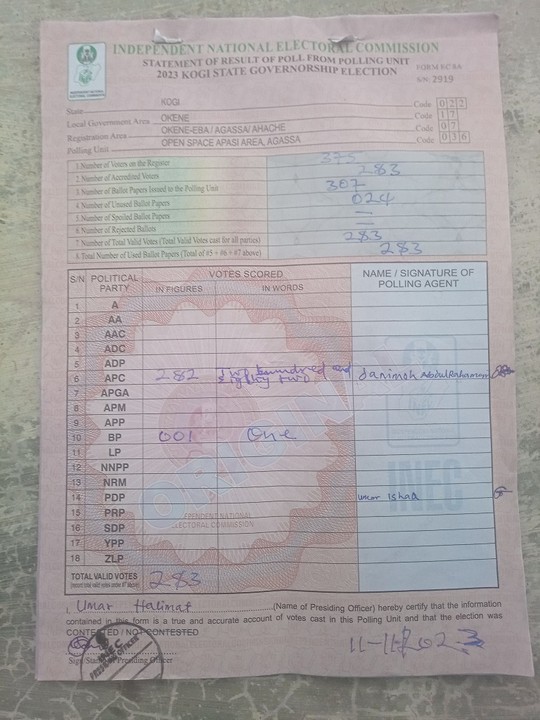 INDEPENDENT NATIONAL ELECTORAL COMMISSION
STATEMENT OF RESULT OF POLL FROM POLLING UNIT
FORM EC 8A
2023 KOGI STATE GOVERNORSHIP ELECTION
S/N: 2919
State KOGI Code 022
Local Government Area OKENE Code 17
Registration Area OKENE-EBA / AGASSA/ AHACHE Code 07
Polling Unit OPEN SPACE APASI AREA, AGASSA Code 036
1 Number of Voters on the Register 375
2 Number of Accredited Voters 283
3 Number of Ballot Papers Issued to the Polling Unit 307
4 Number of Unused Ballot Papers 024
5 Number of Spoiled Ballot Papers
6 Number of Rejected Ballots
7 Number of Total Valid Votes (Total Valid Votes cast for all parties) 283
8 Total Number of Used Ballot Papers (Total of #5 + #6 + #7 above) 283
S/N POLITICAL PARTY VOTES SCORED NAME / SIGNATURE OF POLLING AGENT
IN FIGURES IN WORDS
1 A
2 AA
3 AAC
4 ADC
5 ADP
6 APC 282 Two hundred and eighty two Janimoh AbdulRahaman
7 APGA
8 APM
9 APP
10 BP 001 One
11 LP
12 NNPP
13 NRM
14 PDP Umar Ishaq
15 PRP
16 SDP
17 YPP
18 ZLP
TOTAL VALID VOTES 283
ORIGINAL
INEC
I, Umar Halimat (Name of Presiding Officer) hereby certify that the information
contained in this form is a true and accurate account of votes cast in this Polling Unit and that the election was
CONTESTED / NOT CONTESTED
Sign/Stamp of Presiding Officer
INEC
PRESIDING OFFICER
11-11-2023